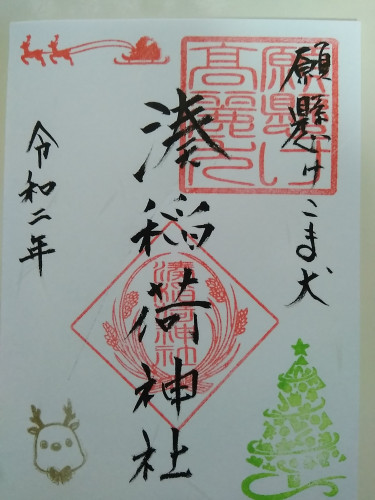 願懸けこま犬
願懸け高麗犬
湊稲荷神社
湊稲荷神社
令和二年